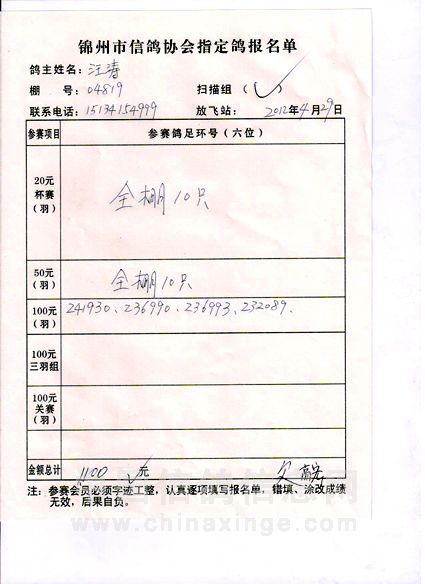 锦州市信鸽协会指定鸽报名单
鸽主姓名：汪涛
棚　号：04819　扫描组（√）
联系电话：15134154999　放飞站：2012年4月29日
参赛项目　参赛鸽足环号（六位）
20元
杯赛
（羽）
全棚10只
50元
（羽）
全棚10只
100元
（羽）
241930、236990、236993、232089.
100元
三羽组
100元
关赛
（羽）
金额总计　1100元　欠
注：参赛会员必须字迹工整，认真逐项填写报名单，错填、涂改成绩
无效，后果自负。
www.chinaxinge.com